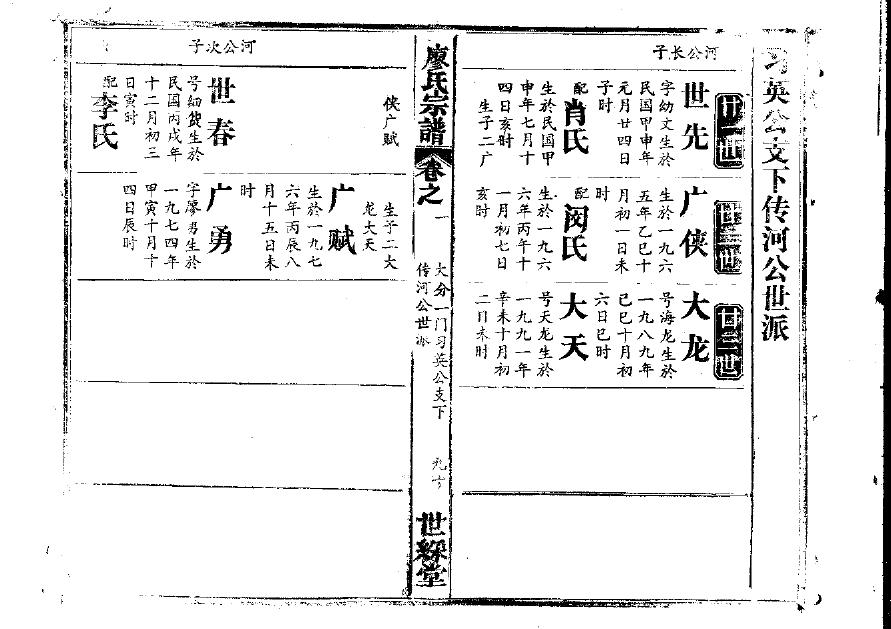 习英公支下传河公世派
河公长子
廿一世
世先
字幼文生於
民国甲申年
元月廿四日
子时
配肖氏
生於民国甲
申年七月十
四日亥时
生子二广
廿二世
广侠
生於一九六
五年乙巳十
月初一日未
时
配闵氏
生於一九六
六年丙午十
一月初七日
亥时
廿三世
大龙
号海龙生於
一九八九年
己巳十月初
六日巳时
大天
号天龙生於
一九九一年
辛未十月初
二日未时
廖氏宗譜
卷之一
大分一门习英公支下
传河公世派
九
世綵堂
河公次子
侠广赋
世春
号幼生於
民国丙戌年
十二月初三
日寅时
配李氏
生子二大
龙大天
广赋
生於一九七
六年丙辰八
月十五日未
时
广勇
字廖男生於
一九七四年
甲寅十月十
四日辰时